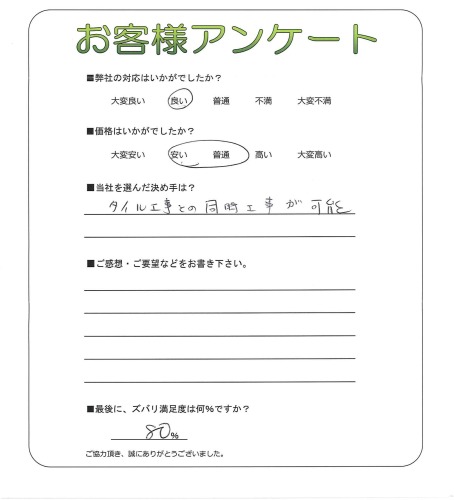 お客様アンケート
■弊社の対応はいかがでしたか？
大変良い 良い 普通 不満 大変不満
■価格はいかがでしたか？
大変安い 安い 普通 高い 大変高い
■当社を選んだ決め手は？
タイル工事との同時工事が可能
■ご感想・ご要望などをお書き下さい。
■最後に、ズバリ満足度は何%ですか？
80%
ご協力頂き、誠にありがとうございました。